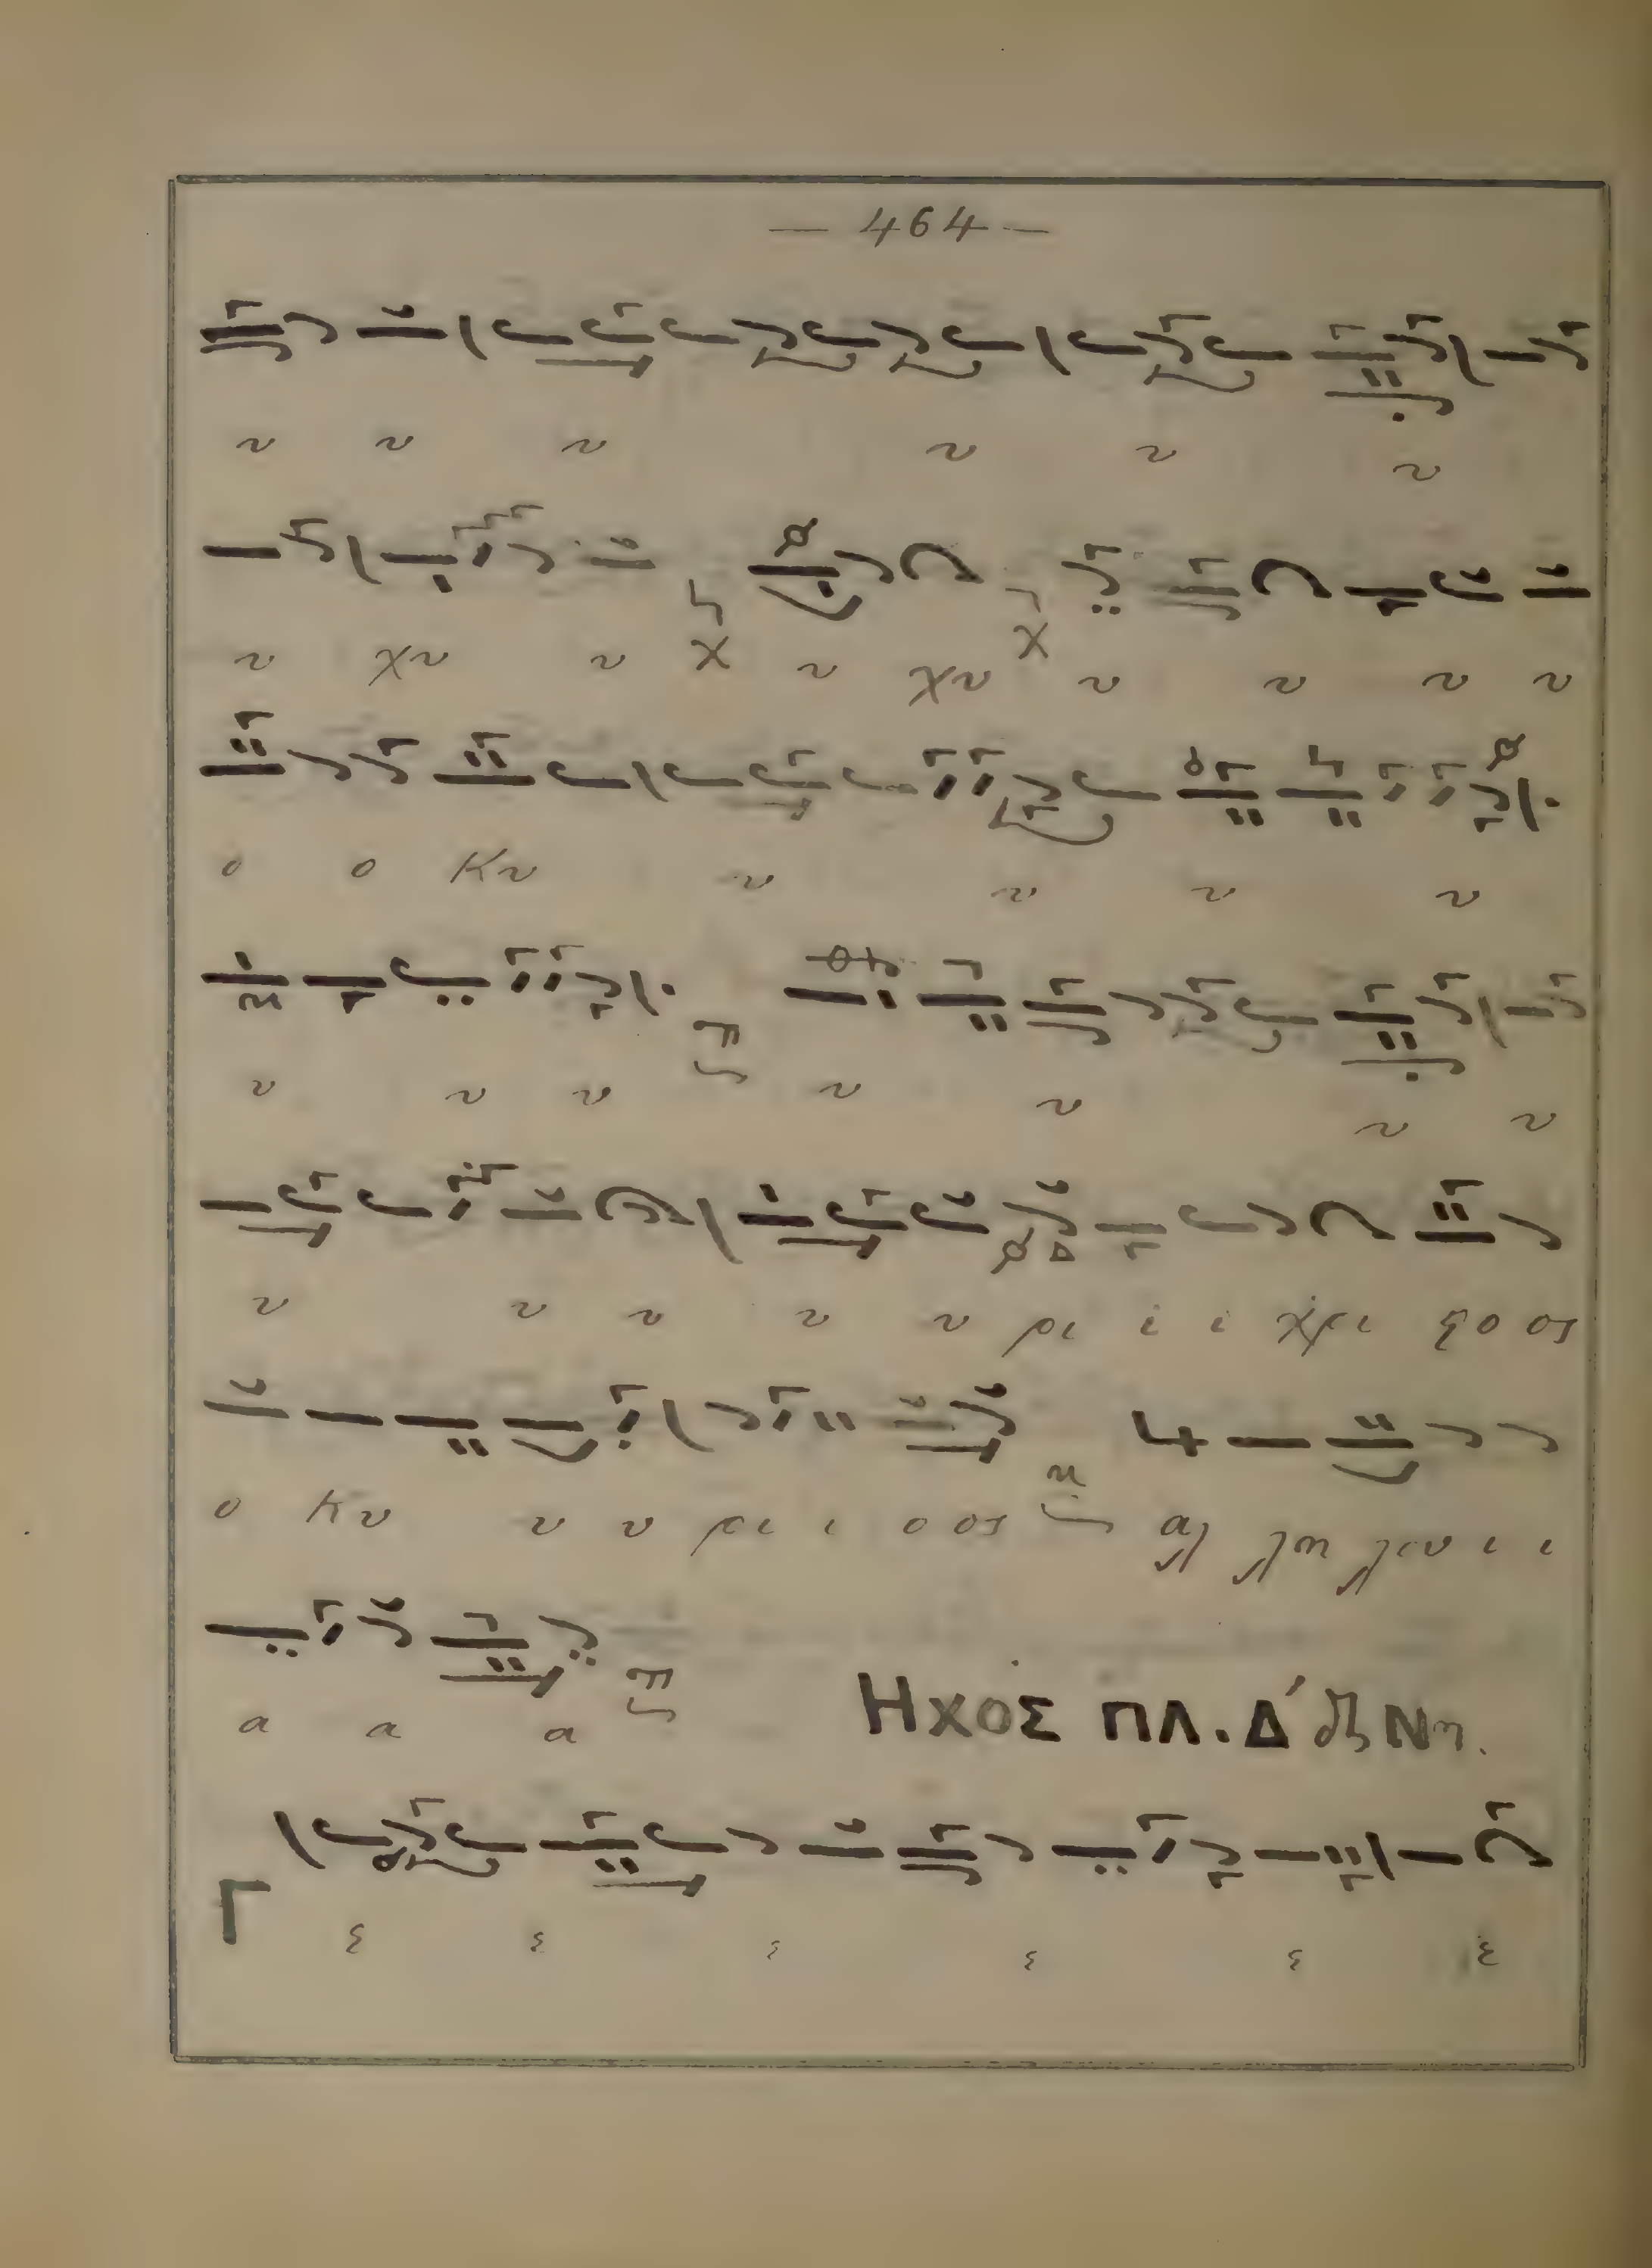 — 464 —
υ υ υ υ υ υ
υ χυ υ υ χυ υ υ υ υ
ο ο Κυ υ υ υ υ
υ υ υ υ υ υ υ
υ υ υ υ υ ρι ι ι χρι ϛο ος
ο Κυ υ υ ρι ι ο ος αλ λη λου ι ι
α α α
Ηχος ΠΛ. Δ΄ Νη.
ε ε ε ε ε ε